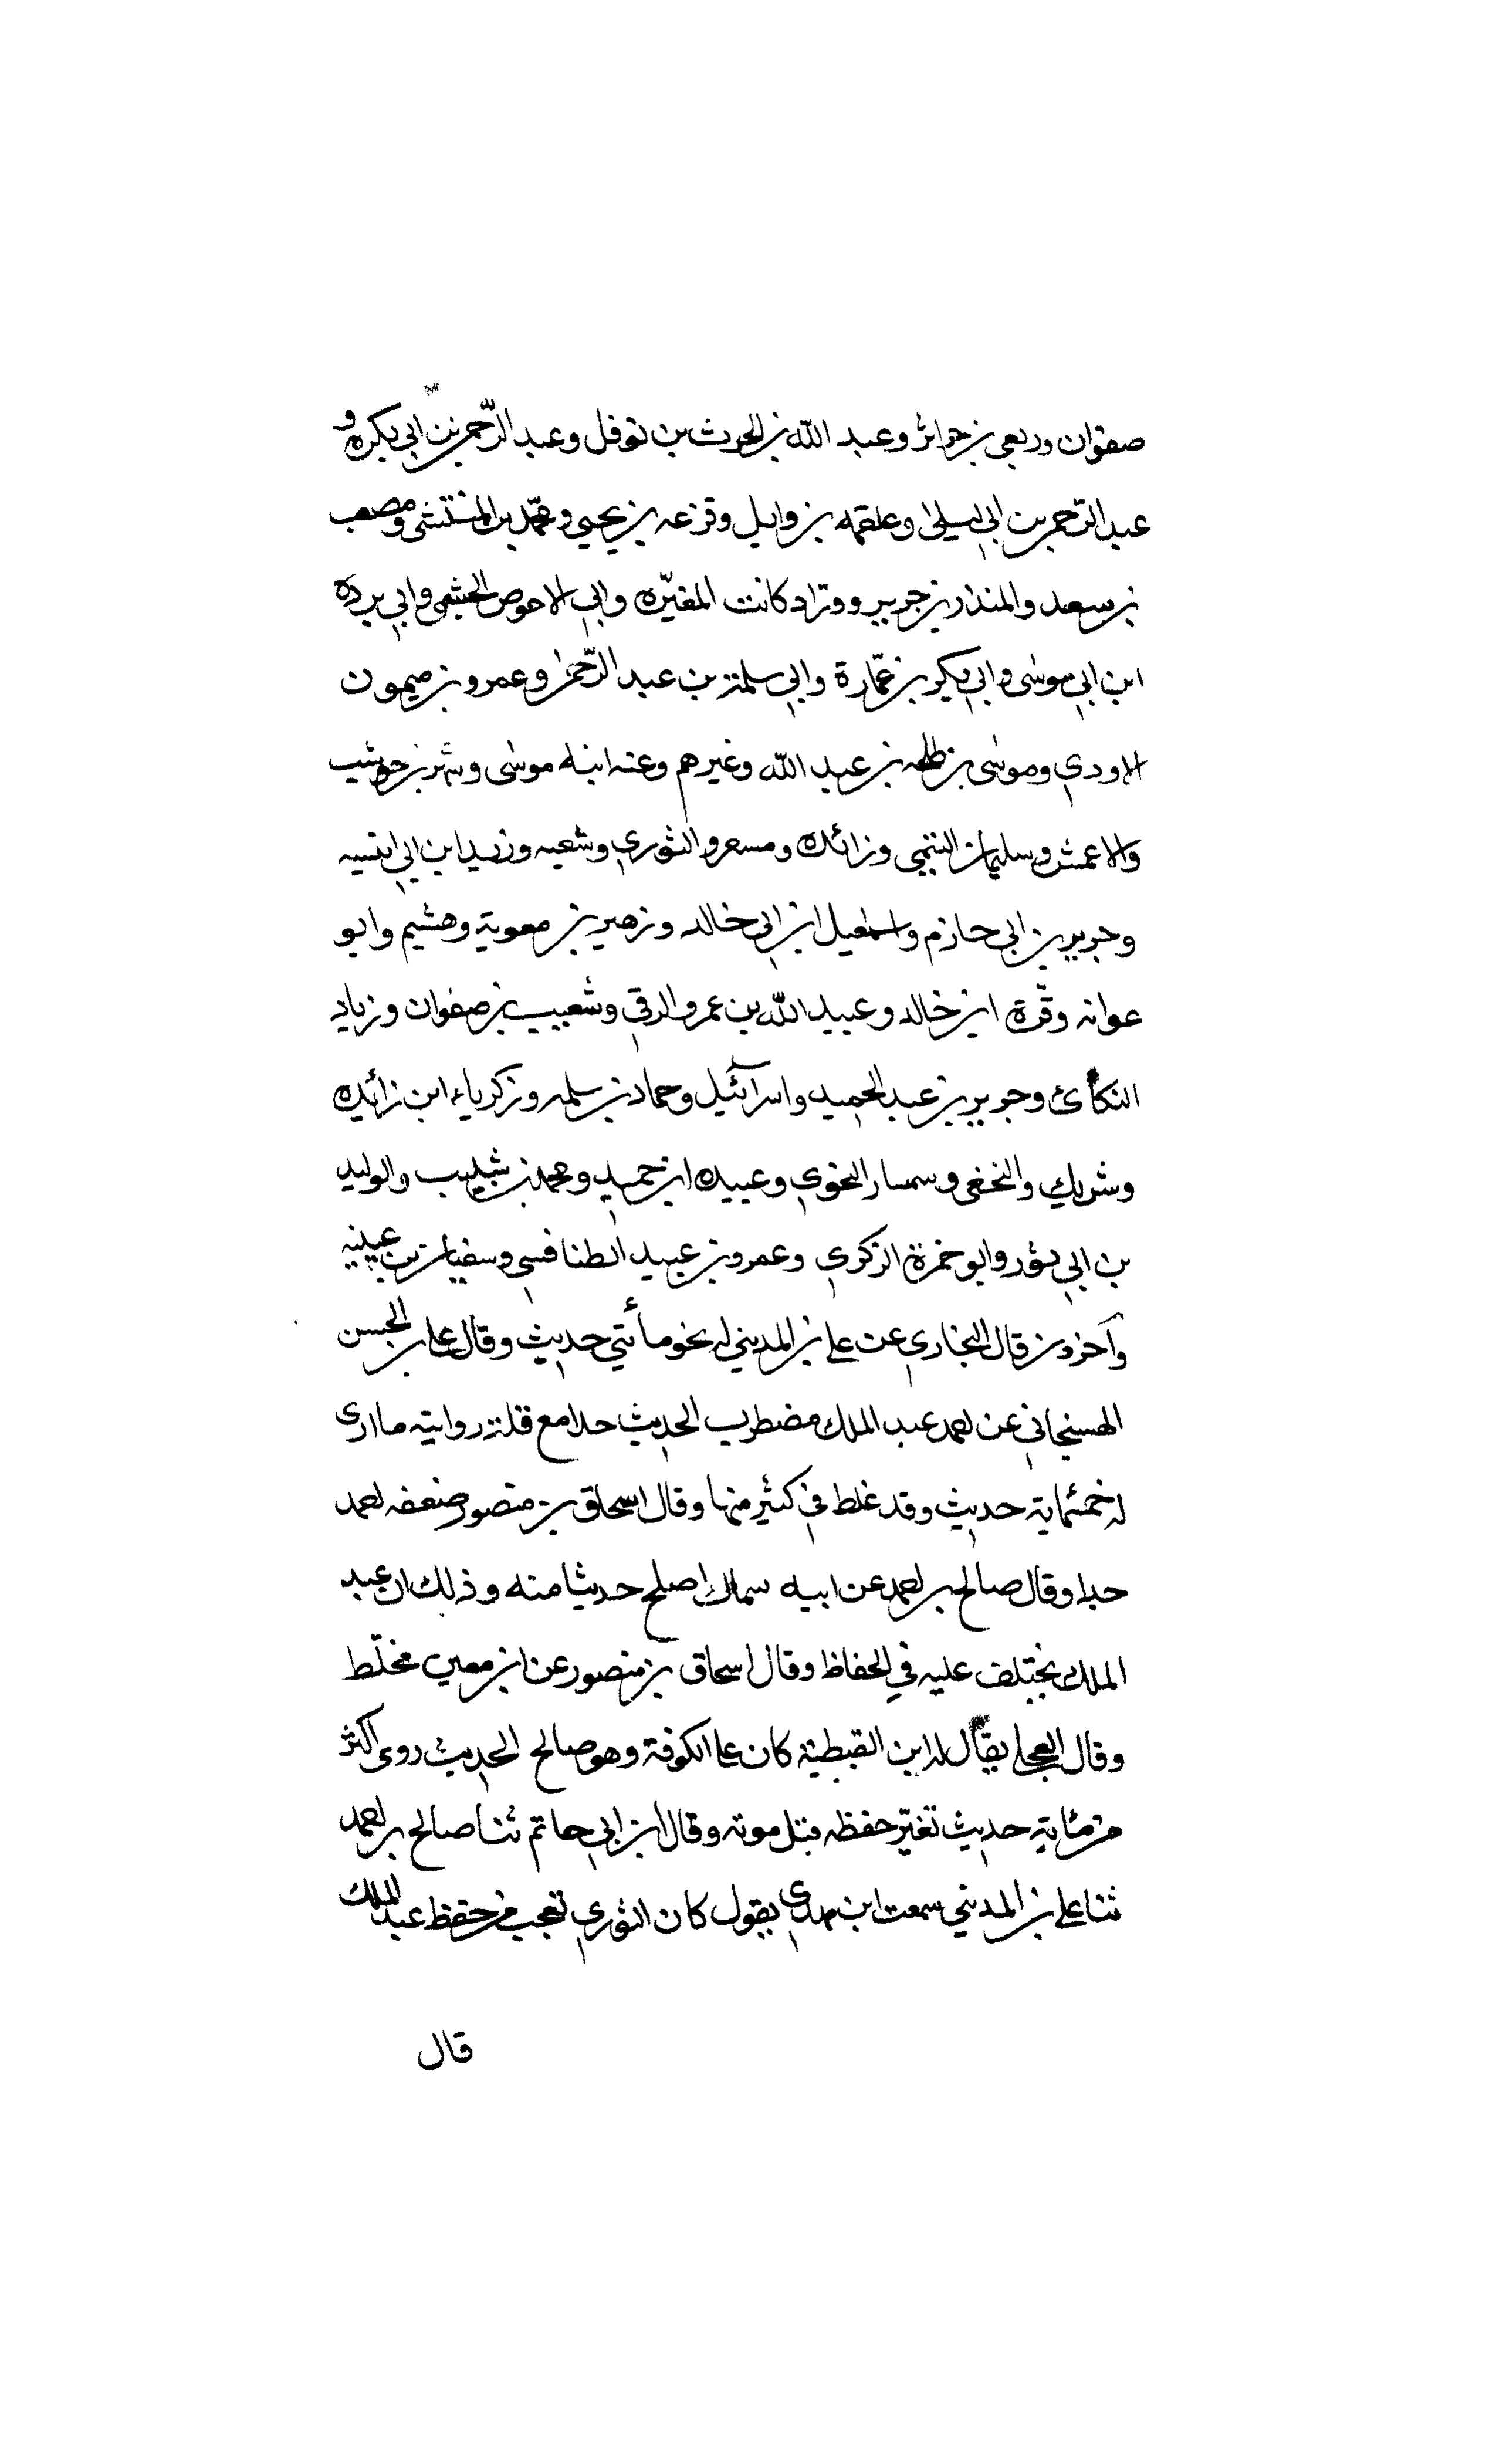 صفوان وربعي بن حراش وعبد الله بن الحرث بن نوفل وعبد الرّحمن بن ابي بكره و
عبد الرّحمن بن ابي ليلى وعلقمه بن وايل وقزعه بن يحيي ومحمّد بن المنتشى ومصعب
بن سعد والمنذر بن جرير ووراد كانت المغيّره وابي الاحوص الجشمي وابي برده
ابن ابي موسى وابي بكر بن عمّارة وابي سلمة بن عبد الرّحمن وعمرو بن ميمون
الاودي وموسى بن طلحه بن عبد الله وغيرهم وعنه ابنه موسى وشهر بن حوشب
والاعمش وسليمان التيمي وزائده ومسعر والثوري وشعبه وزيد ابن ابي انيسه
وجرير بن ابي حازم واسمعيل ابن ابي خالد وزهير بن معوية وهشيم وابو
عوانه وقرّة ابن خالد وعبيد الله بن عمرو الرقي وشعيب بن صفوان وزياد
البكائ وجرير بن عبد الحميد واسرآئيل وحماد بن سلمه وزكرياء ابن زائده
وشريك والنخعى و النحوي وعبيده ابن حميد ومحمد بن شبيب والوليد
بن ابي ثور وابو حمزة الزكري وعمرو بن عبيد الطنافسي وسفيان بن عيينه
وآخرون قال البخاري عن علي بن المديني له نحو مأتي حديث وقال علي بن الحسن
الهسنجاني عن احمد عبد الملك مضطرب الحديث جدا مع قلة روايته ما ارى
له خمسماية حديث وقد غلط في كثير منها وقال اسحاق بن منصور ضعفه احمد
جدا وقال صالح بن احمد عن ابيه سماك اصلح حديثا منه وذلك ان عبد
الملك يختلف عليه في الحفاظ وقال اسحاق بن منصور عن ابن معين مخلّط
وقال العجلي يقال له ابن القبطية كان علي الكوفة وهو صالح الحديث روى اكثر
من ماية حديث تغيّر حفظه قبل موته وقال ابن ابي حاتم ثنا صالح بن احمد
ثنا علي بن المديني سمعت ابن مهدي يقول كان الثوري تعجب من حفظ عبد الملك
قال